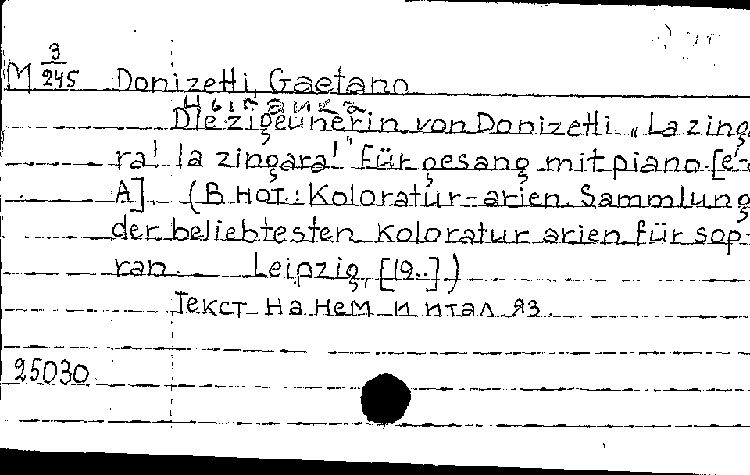 M 3/245 Donizetti, Gaetano
Цыганка
Die zigeunerin von Donizetti „La zinga
ra! la zingara!" Für gesang mit piano. [e-
A]. (В нот.: Koloratur-arien. Sammlung
der beliebtesten koloratur arien für sop-
ran. Leipzig, [19..])
Текст на нем и итал яз.
25030